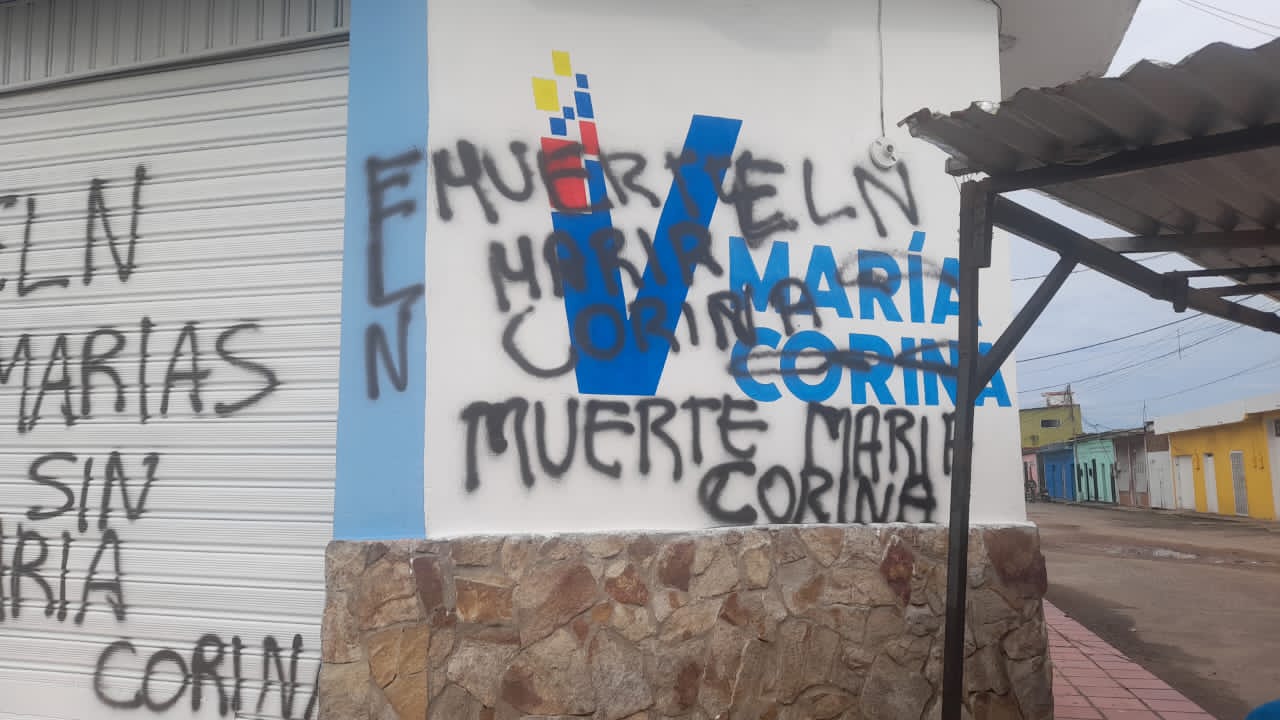 ELN
MARIAS
SIN
ARIA
CORINA
ELN
MUERTE ELN
MARIA
CORINA
MUERTE MARIA
CORINA
V
MARÍA
CORINA